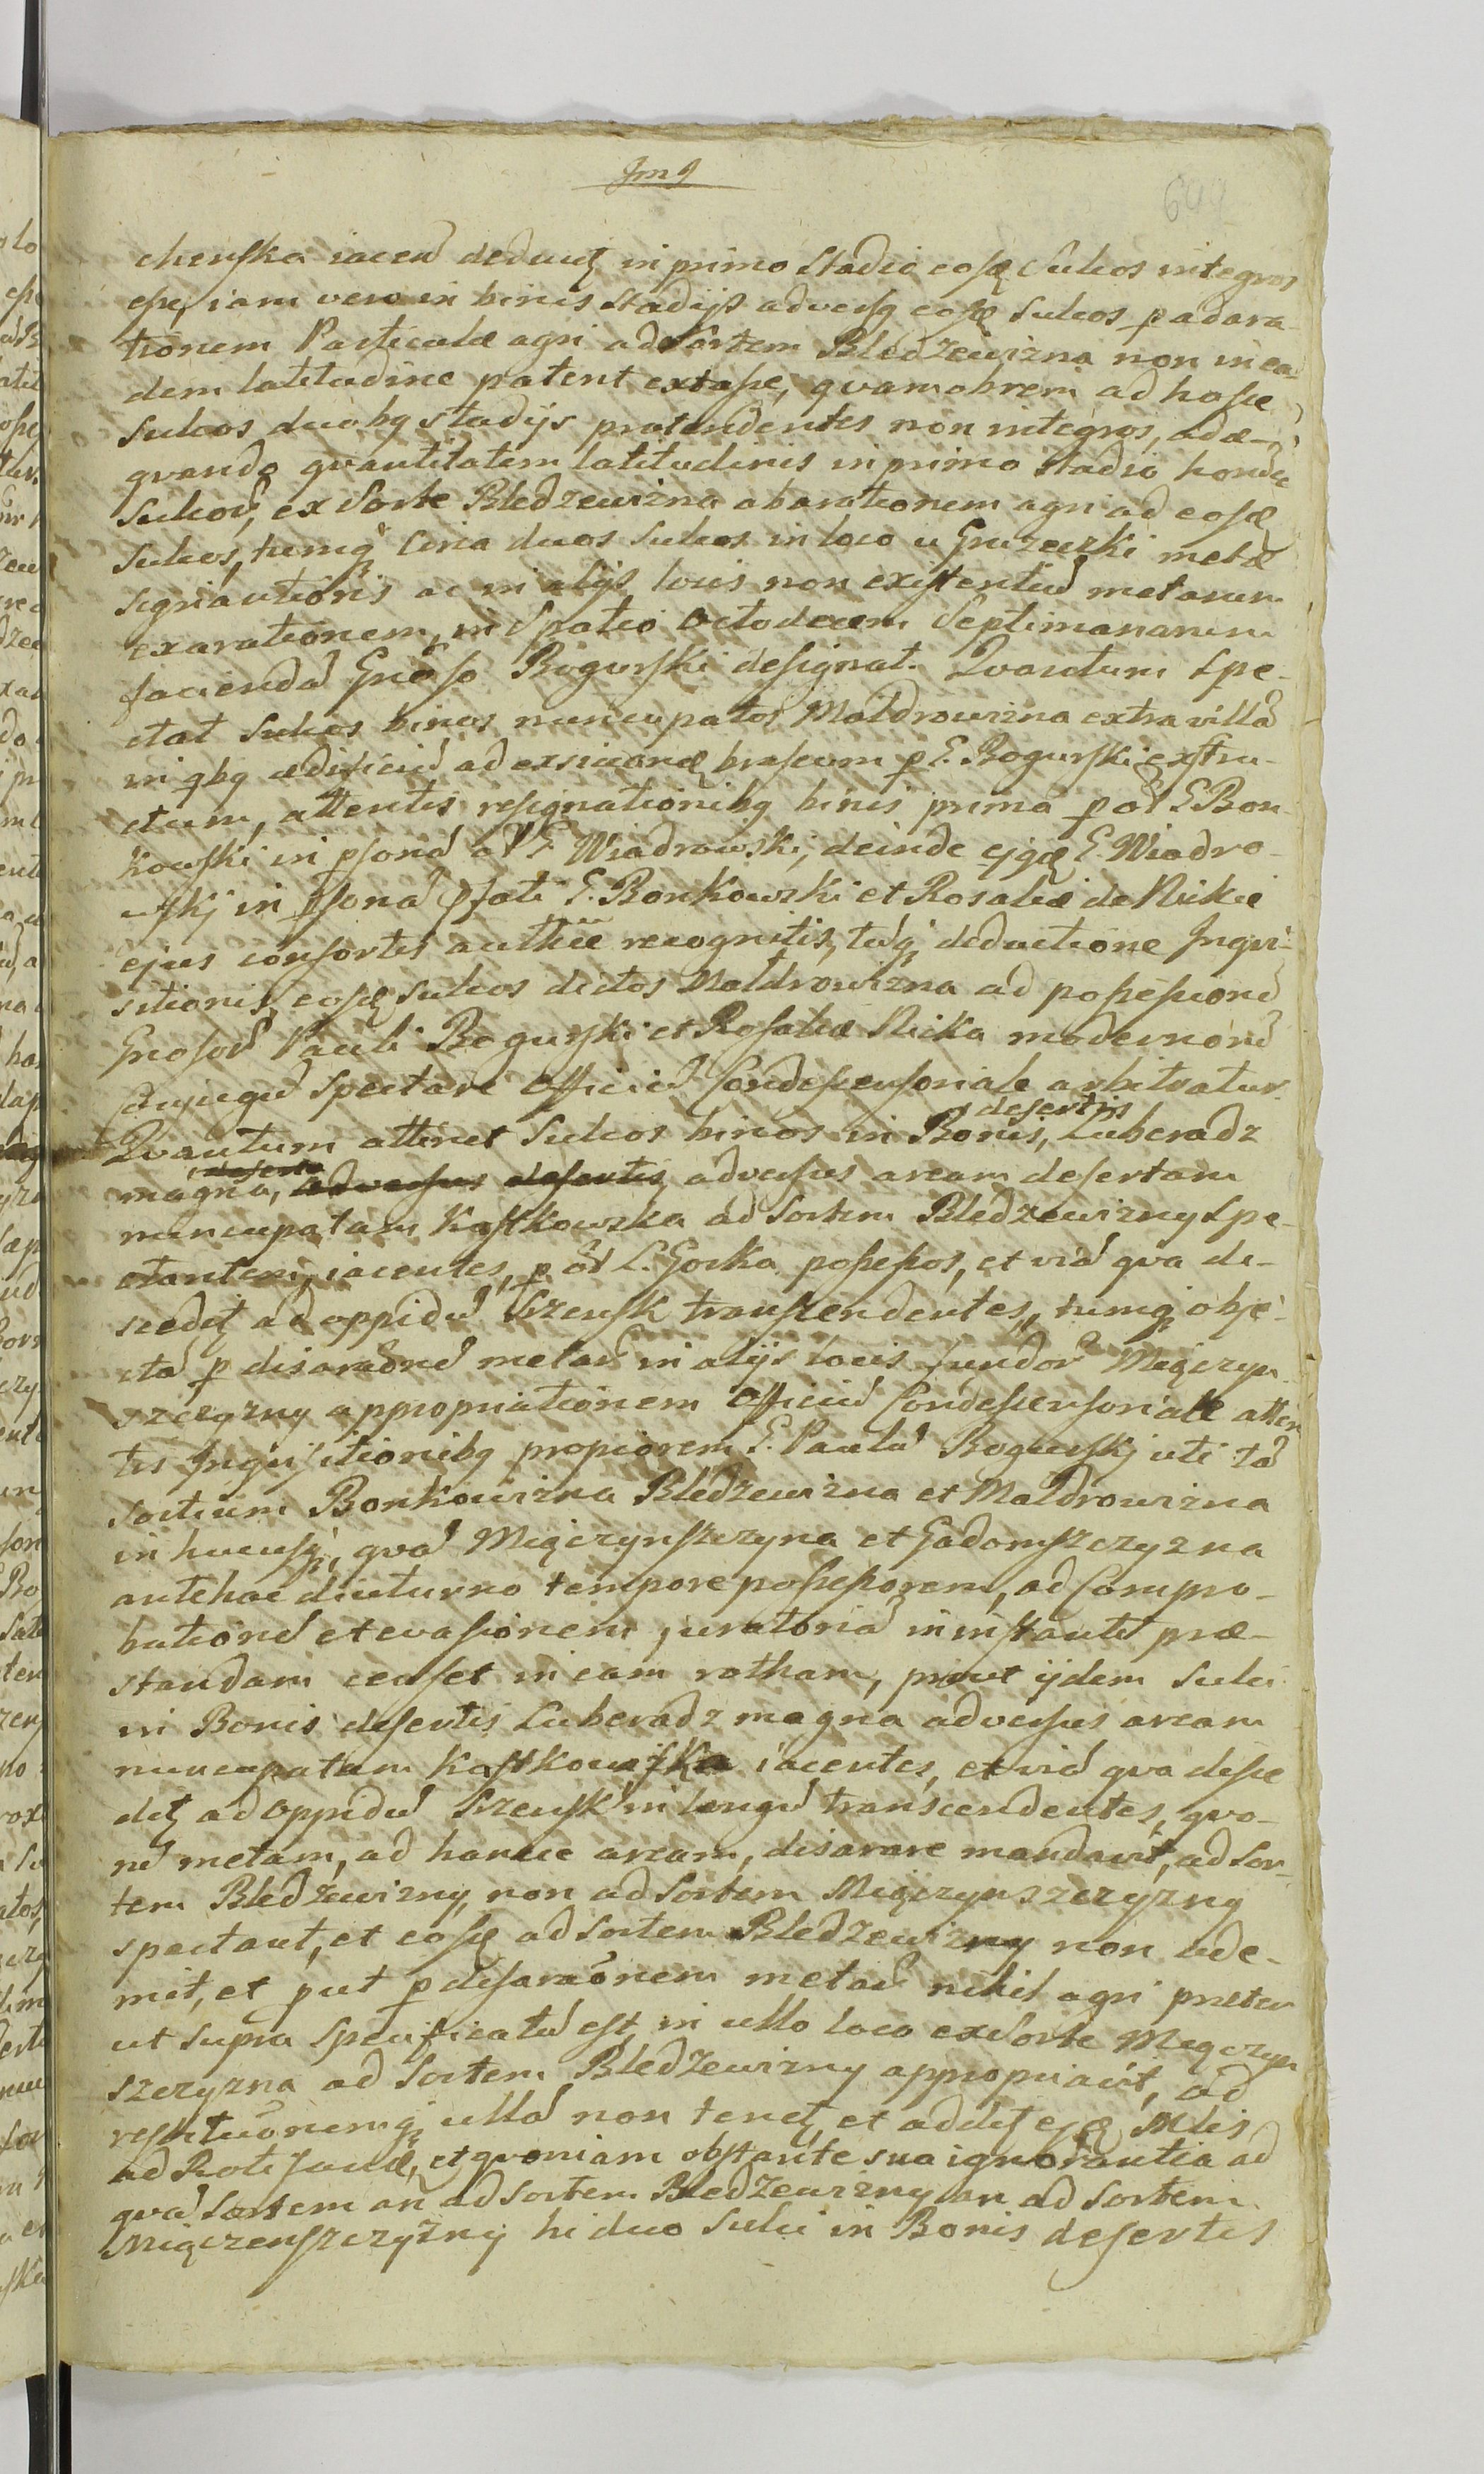 649
cherska iacen̄ deducit̨ in primo Stadio eosq̨ Sulcos integros
esse, iam vero in binis stadijs adversq̨ eosq̨ Sulcos p adara-
tionem Particulæ agri ad Sortem Bledzewizna non in ea-
dem latitudine patent extasse, qvamobrem ad hosce
Sulcos duobq̨ stadijs protendentes non integros, adæ-
qvando qvantitatem latitudinis in primo stadio hon̄d̄
Sulcor̄, ex Sorte Bledzewizna abarationem agri ad eosq̨
Sulcos, tumq̨ circa duos Sulcos in loco u Gruzeczki metæ
signantionis ac in alijs locis non existentiu̅ metarum
exarationem, in Spatio octodecem Septimanarum
faciendā Gnoso Bogurski designat. Qvantum spe-
ctat Sulcos binos nuncupatos Maldrowizna extra villā
in qbq̨ ædificiū ad exsiccandq̨ braseum p G. Bogurski exstru-
ctum, attentis resignationibq̨ binis prima p ol G Bon-
kowski in psonā ol G Wiadrowski, deinde ejq̨q̨ G. Wiadro-
wskj in psonā pfati G. Bonkowski et Rosaliæ de Nickie
ejus consortis authēē recognitis, tūq̨ deductione Inqvi-
sitionis, eosq̨ Sulcos dictos Maldrowizna ad possessionē
Gnosor̄ Pauli Bogurski et Rosaliæ Nicka modernorū
Conjugū spectare Officiū Condescensoriale arbitratur.
Qvantum attinet Sulcos binos in Bonis, desertis Luberadz
magna, deserta adversus desertis, adversus aream desertam
nuncupatam Kostkowska ad Sortem Bledzewizny spe-
ctantem, iacentes, p ol L. Gorka possessos, et viā qva de-
scedit̨ ad oppidū Szrensk transcendentes, tumq̨ obje-
ctā p disaraōnē metar̄ in alijs locis fundor̄ Miączyn-
szczyzny appropriationem Officiū Condescensoriale atten-
tis Inqvisitionibq̨ propiorem G. Paulū Bogurskj uti tā
Sortium Bonkowizna Bledzewizna et Maldrowizna
in hucusq̨, qvā Miączynszczyna et Gadomszczyzna
antehac diuturno tempore possessorem, ad Compro-
bationē et evasionem, juratoriā in instanti præ-
standam censet in eam rotham, prout ijdem Sulci
in Bonis desertis Luberadz magna adversus aream
nuncupatam Kostkowska iacentes, et viā qva desce
dit̨ ad oppidū Szrensk in longū transcendentes, qvo-
rū metam, ad hancce aream, disarare mandavit, ad Sor-
tem Bledzewizny, non ad Sortem Miączynszczyzny
spectant, et eosq̨ ad Sortem Bledzewizny non ade-
mit, et put p disaraōnem metar̄ nihil agri præter
ut supra specificatū est, in ullo loco ex Sorte Miączyn
szczyzna ad Sortem Bledzewizny appropriavit, ad
restitutionemq̨ ullā non tenet̨, et addit̨ ejq̨ Mtis
ad Rotę, et qvoniam obstante sua ignorantia ad
qvā Sortem an ad Sortem Bledzewizny an ad Sortem
Miączenszczyzny hi duo Sulci in Bonis desertis